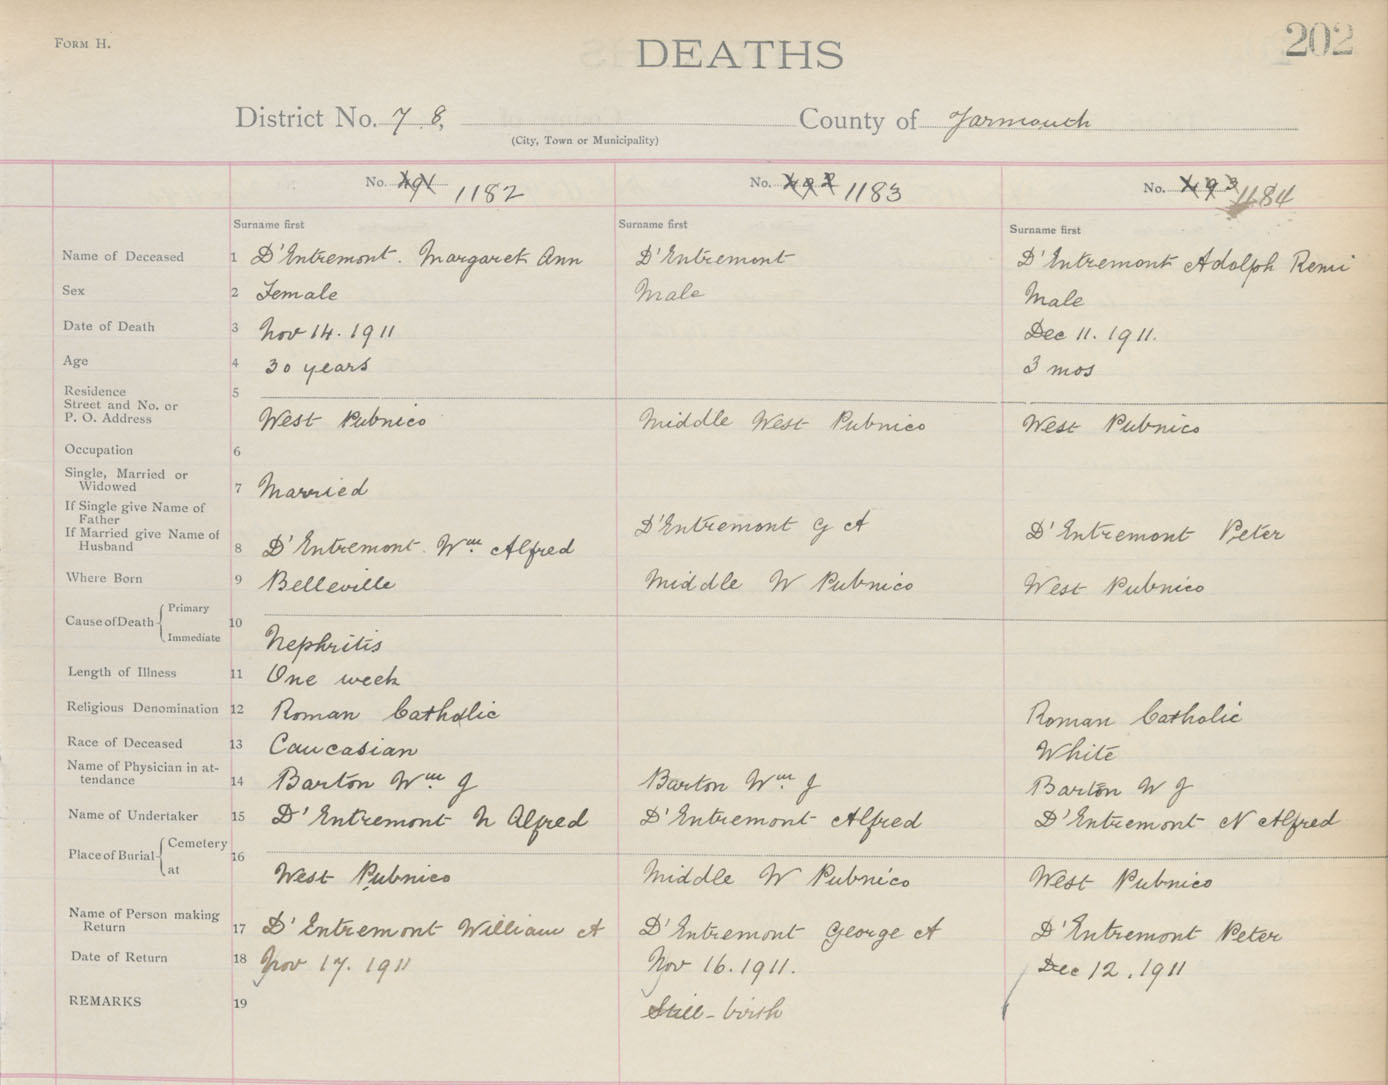 FORM H.
DEATHS
202
District No. 7 8,
County of Yarmouth
(City, Town or Municipality)
No. 491 1182
No. 492 1183
No. 493 1184
Surname first
Surname first
Surname first
Name of Deceased 1 D'Entremont. Margaret Ann
D'Entremont
D'Entremont Adolph Remi
Sex 2 Female
Male
Male
Date of Death 3 Nov 14. 1911
Dec 11. 1911.
Age 4 30 years
3 mos
Residence 5
Street and No. or
P. O. Address
West Pubnico
Middle West Pubnico
West Pubnico
Occupation 6
Single, Married or
Widowed 7 Married
If Single give Name of
Father
If Married give Name of
Husband 8 D'Entremont. Wm. Alfred
D'Entremont G A
D'Entremont Peter
Where Born 9 Belleville
Middle W Pubnico
West Pubnico
Cause of Death Primary
Immediate 10
Nephritis
Length of Illness 11 One week
Religious Denomination 12 Roman Catholic
Roman Catholic
Race of Deceased 13 Caucasian
White
Name of Physician in at-
tendance 14 Barton Wm. J
Barton Wm. J
Barton W J
Name of Undertaker 15 D'Entremont N Alfred
D'Entremont Alfred
D'Entremont N Alfred
Place of Burial Cemetery
at 16
West Pubnico
Middle W Pubnico
West Pubnico
Name of Person making
Return 17 D'Entremont William A
D'Entremont George A
D'Entremont Peter
Date of Return 18 Nov 17. 1911
Nov 16. 1911.
Dec 12. 1911
REMARKS 19
Still-birth